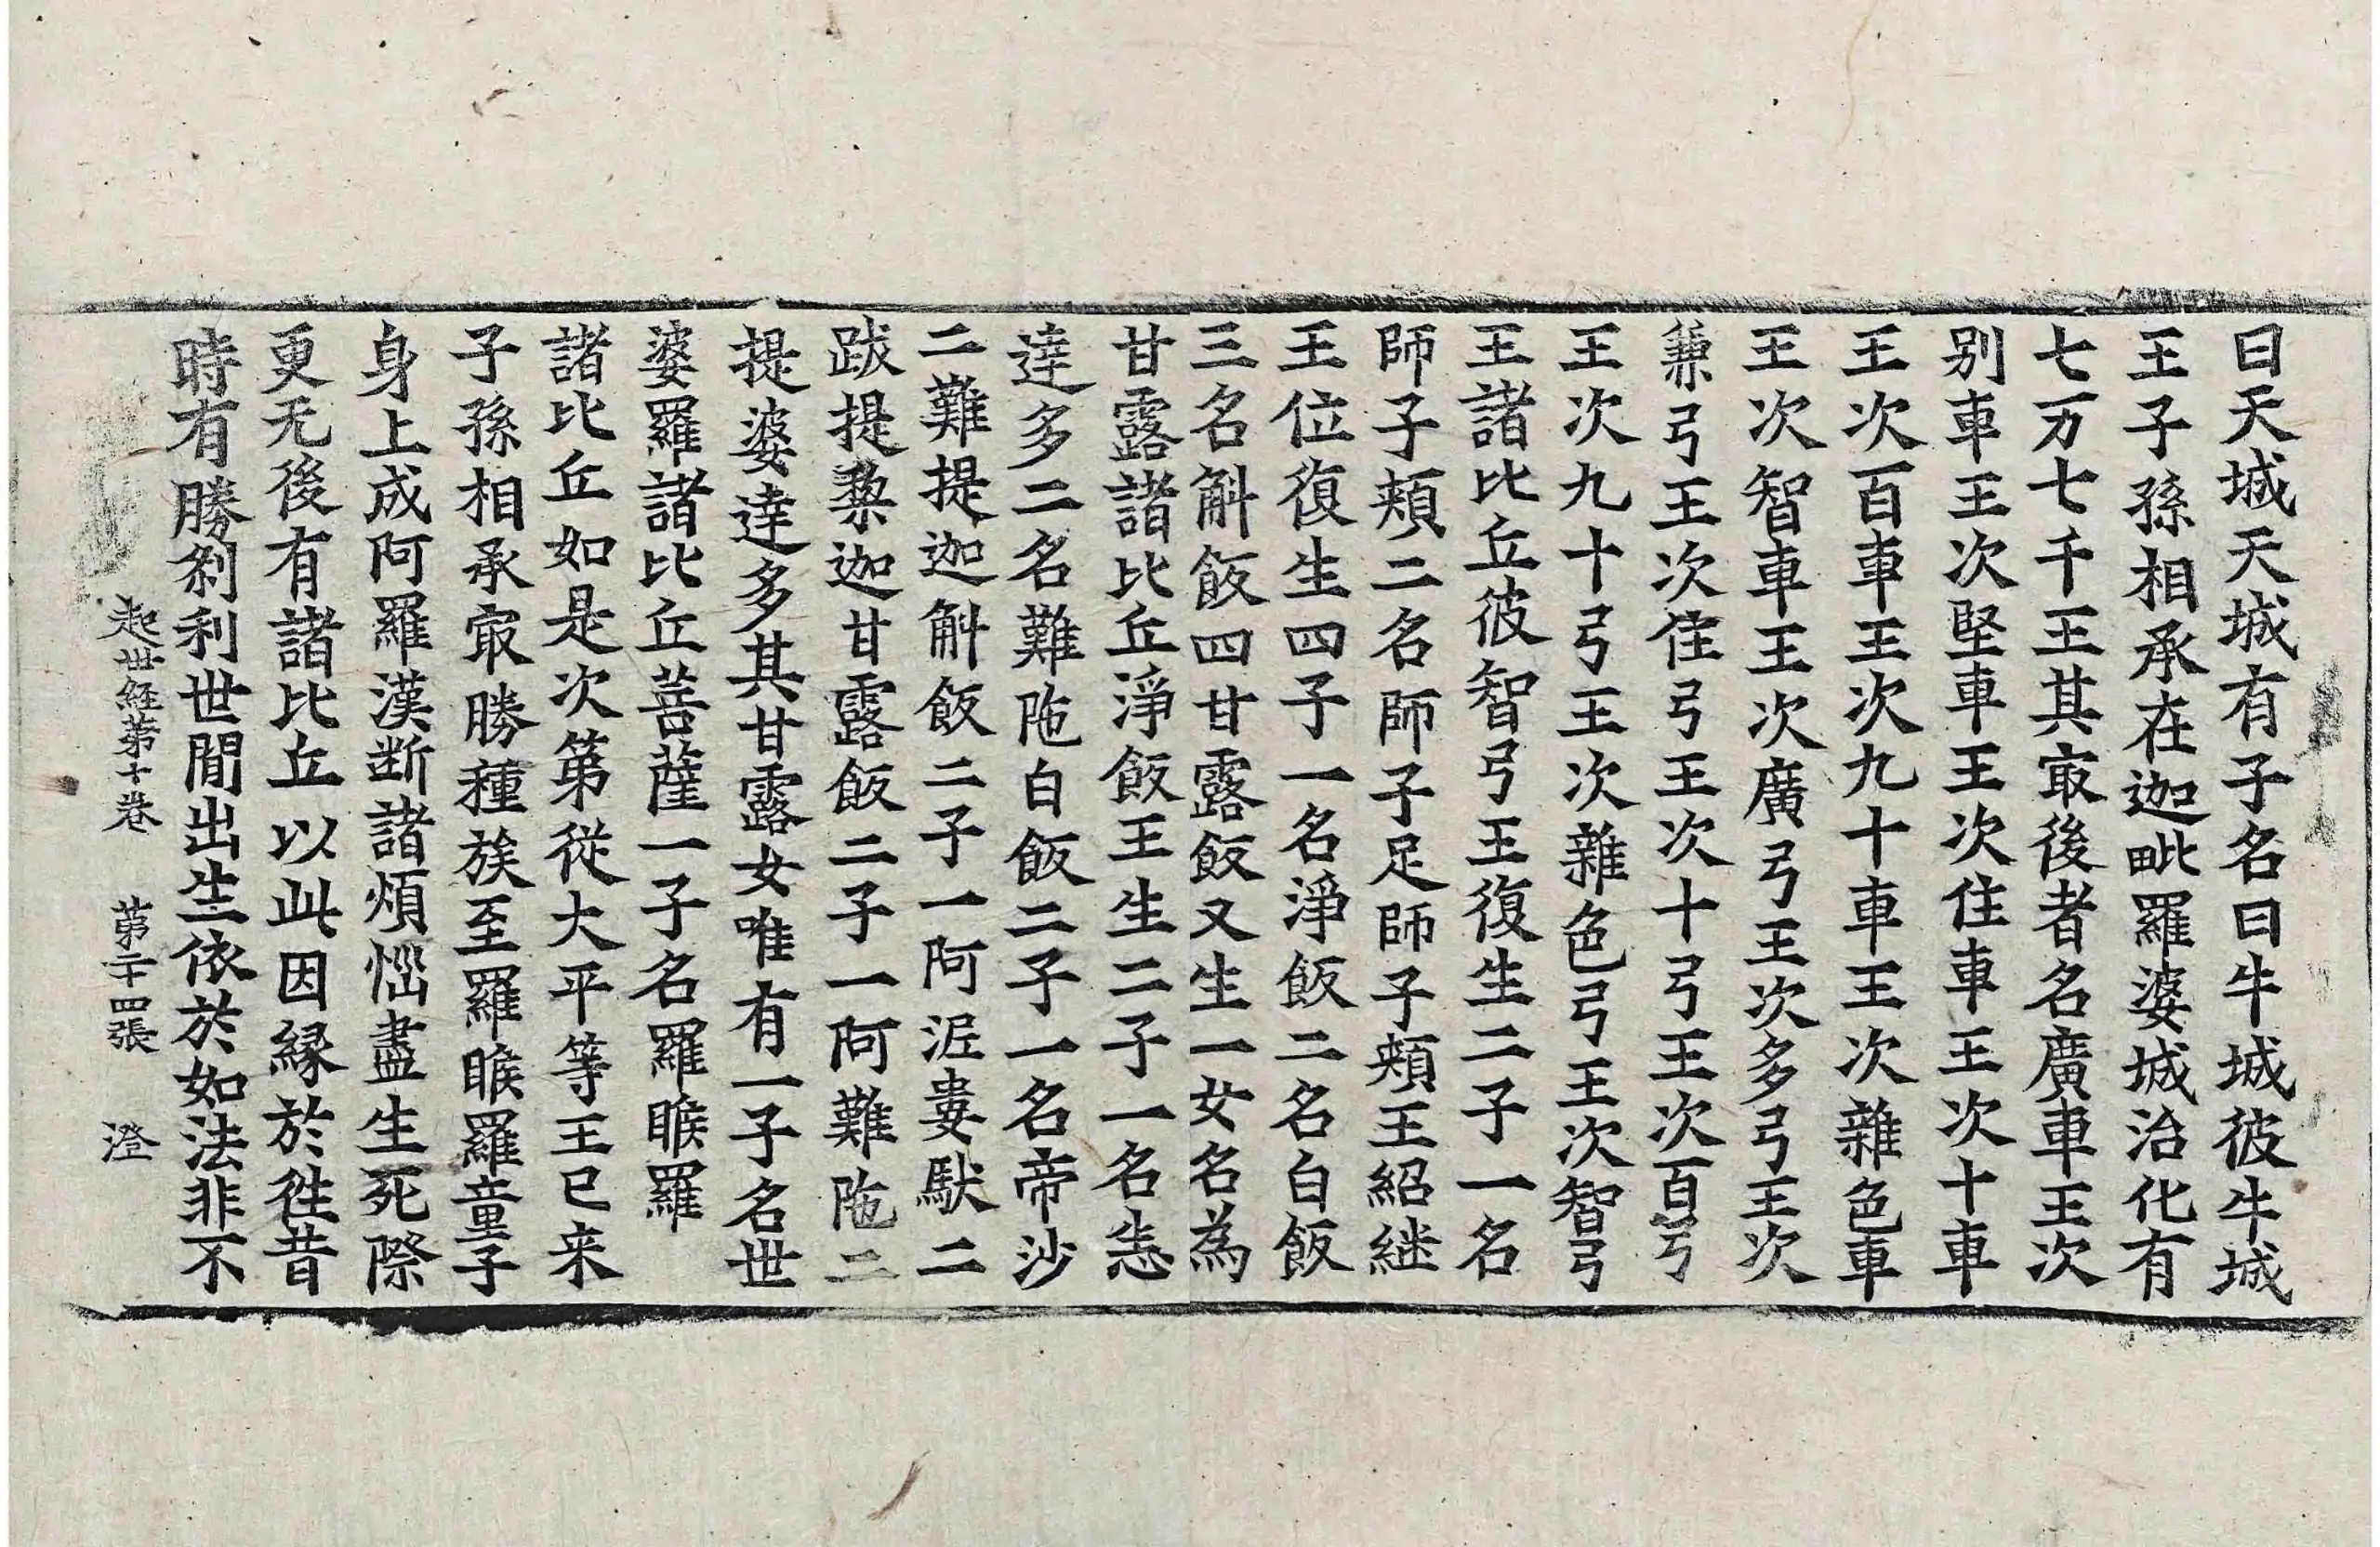 曰天城天城有子名曰牛城彼牛城
王子孫相承在迦毗羅婆城治化有
七万七千王其㝡後者名廣車王次
别車王次堅車王次住車王次十車
王次百車王次九十車王次雜色車
王次智車王次廣弓王次多弓王次
兼弓王次住弓王次十弓王次百弓
王次九十弓王次雜色弓王次智弓
王諸比丘彼智弓王復生二子一名
師子頬二名師子足師子頬王紹継
王位復生四子一名淨飯二名白飯
三名斛飯四甘露飯又生一女名為
甘露諸比丘淨飯王生二子一名悉
達多二名難陁白飯二子一名帝沙
二難提迦斛飯二子一阿泥婁馱二
跋提梨迦甘露飯二子一阿難陁二
提婆達多其甘露女唯有一子名世
婆羅諸比丘菩薩一子名羅睺羅
諸比丘如是次第從大平等王已来
子孫相承㝡勝種族至羅睺羅童子
身上成阿羅漢断諸煩惱盡生死際
更无後有諸比丘以此因縁於徃昔
時有勝刹利世間出生依於如法非不
起世経第十卷 第二十四張 澄